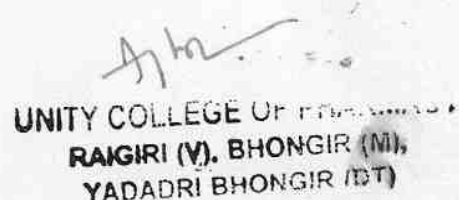 UNITY COLLEGE OF
RAIGIRI (V). BHONGIR (M),
YADADRI BHONGIR (DT)